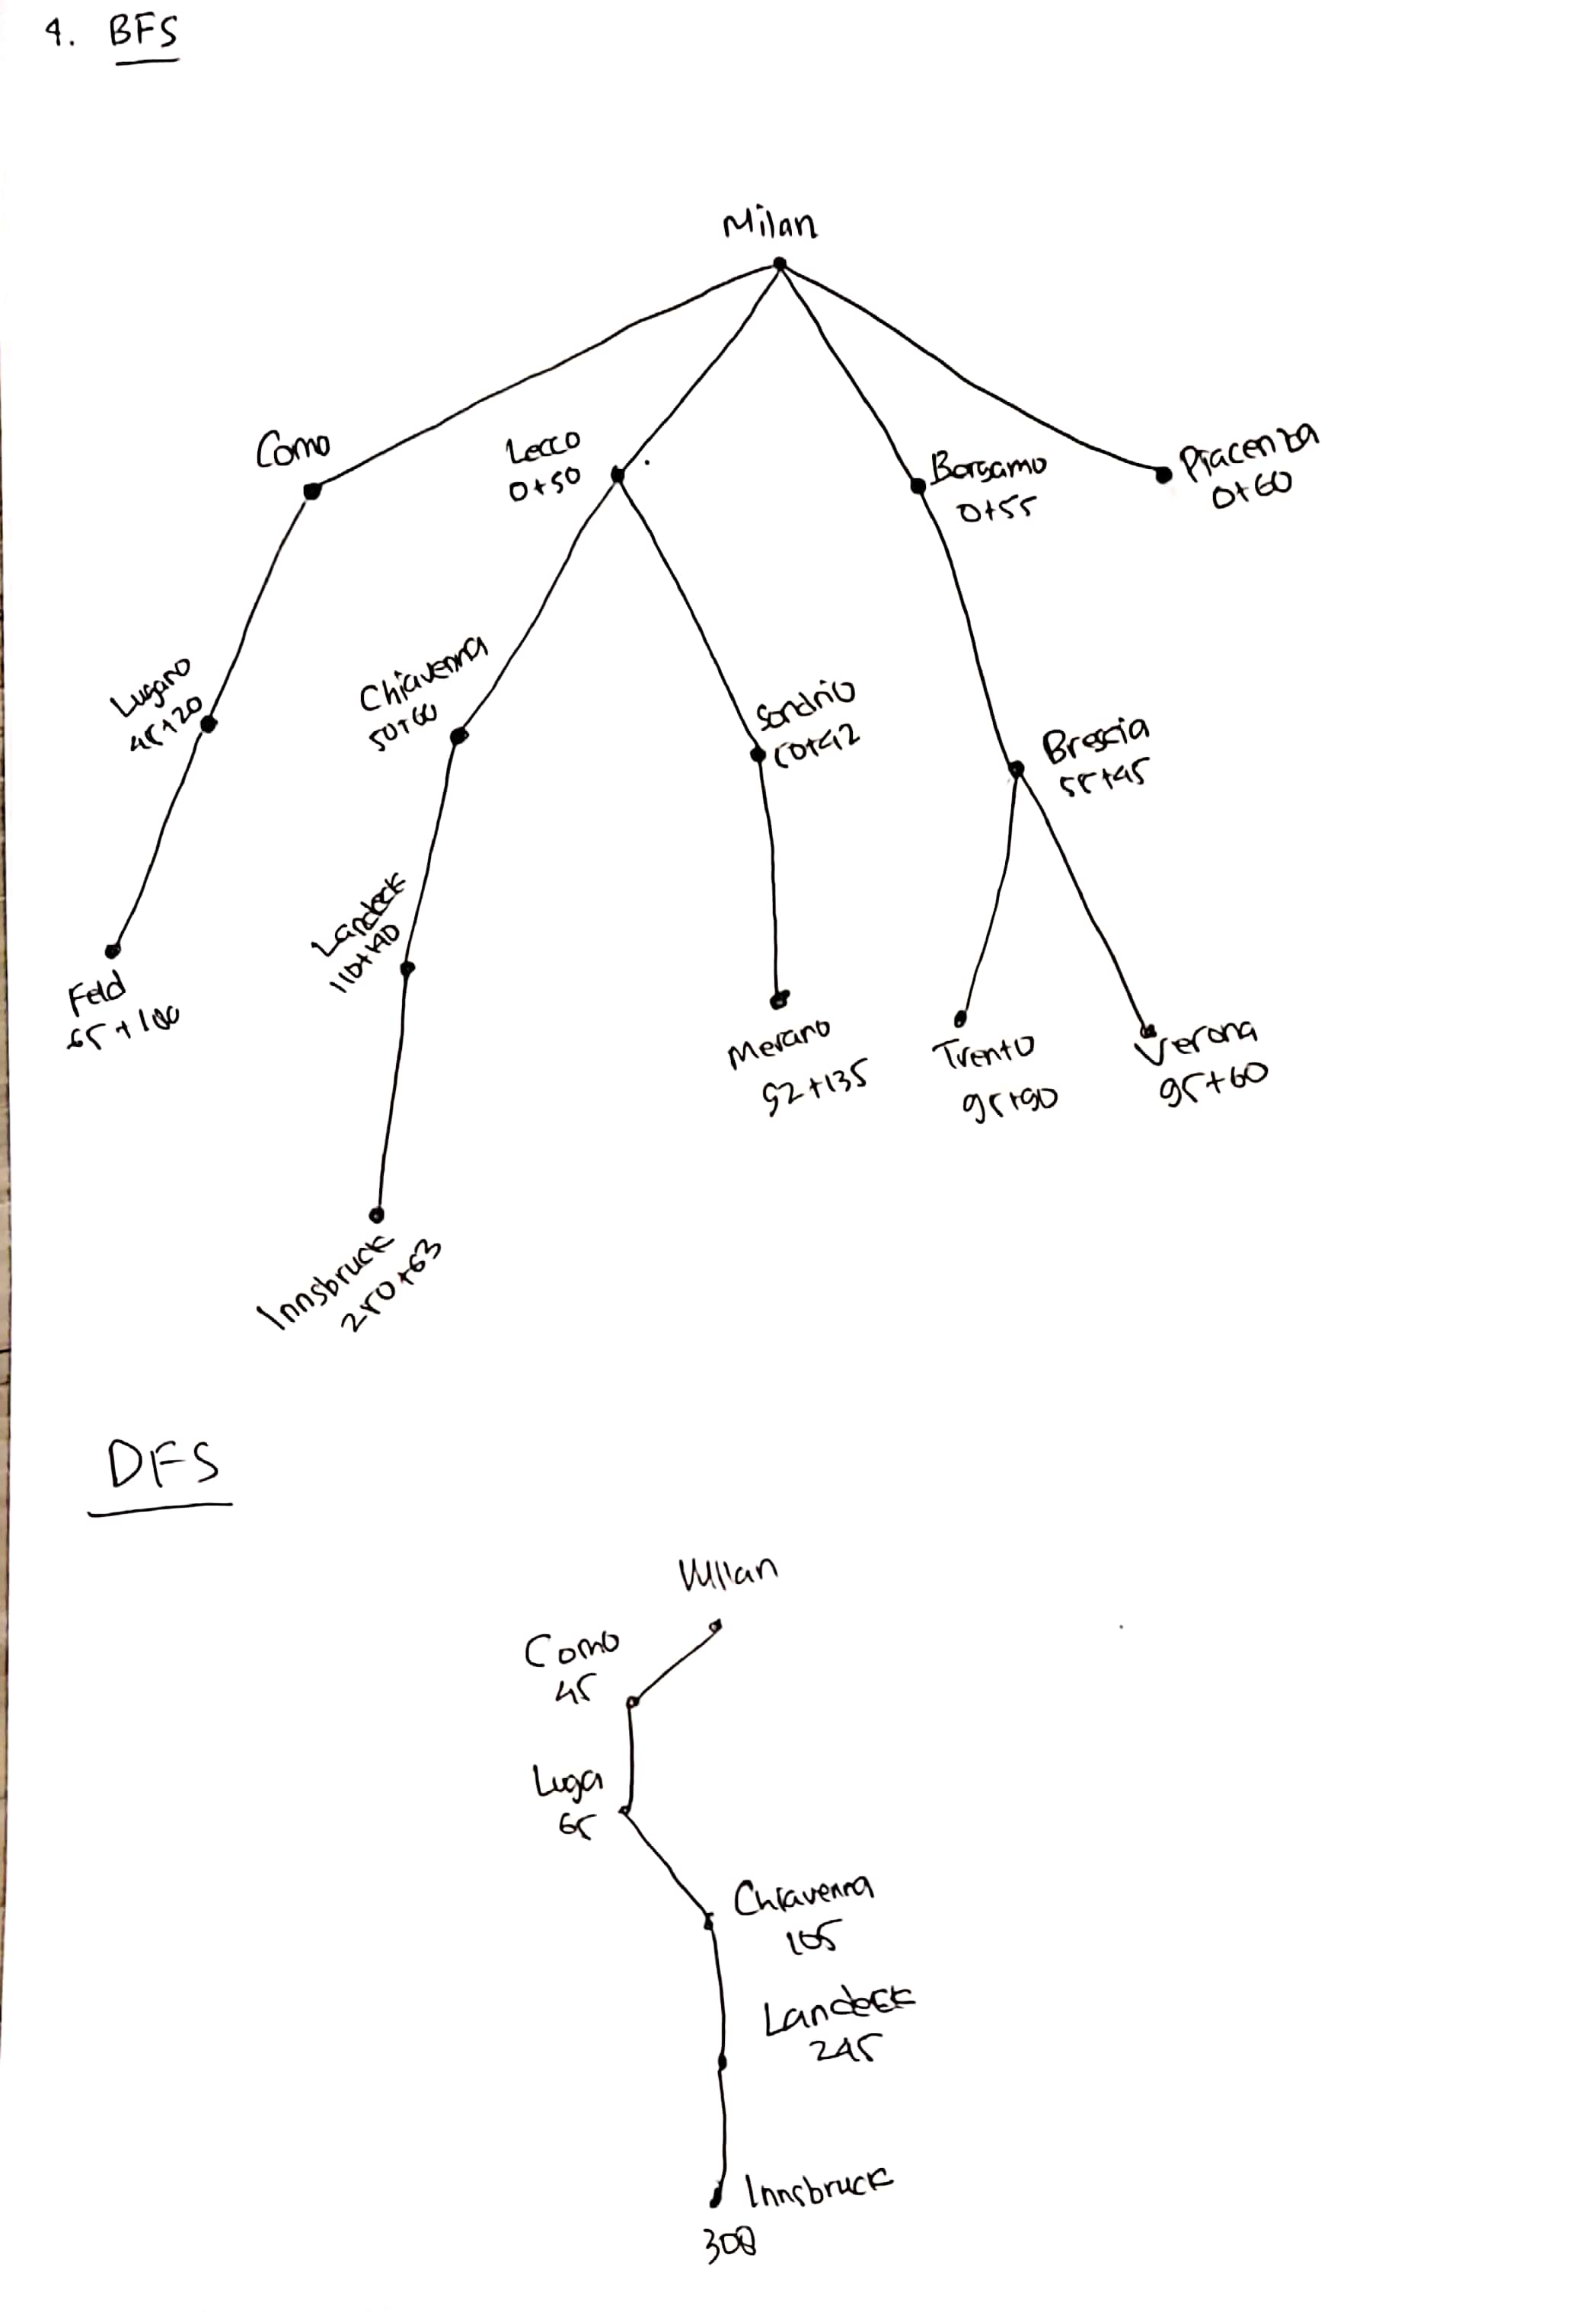 4. BFS
Milan
Como
Lecco
0+50
Bergamo
0+55
Piacenza
0+60
Lugano
45+20
Chiavenna
50+60
Sondrio
50+42
Brescia
55+45
Landeck
110+140
Feld
65+100
Merano
92+135
Trento
95+90
Verona
95+60
Innsbruck
250+63
DFS
Milan
Como
45
Luga
65
Chiavenna
105
Landeck
245
Innsbruck
308